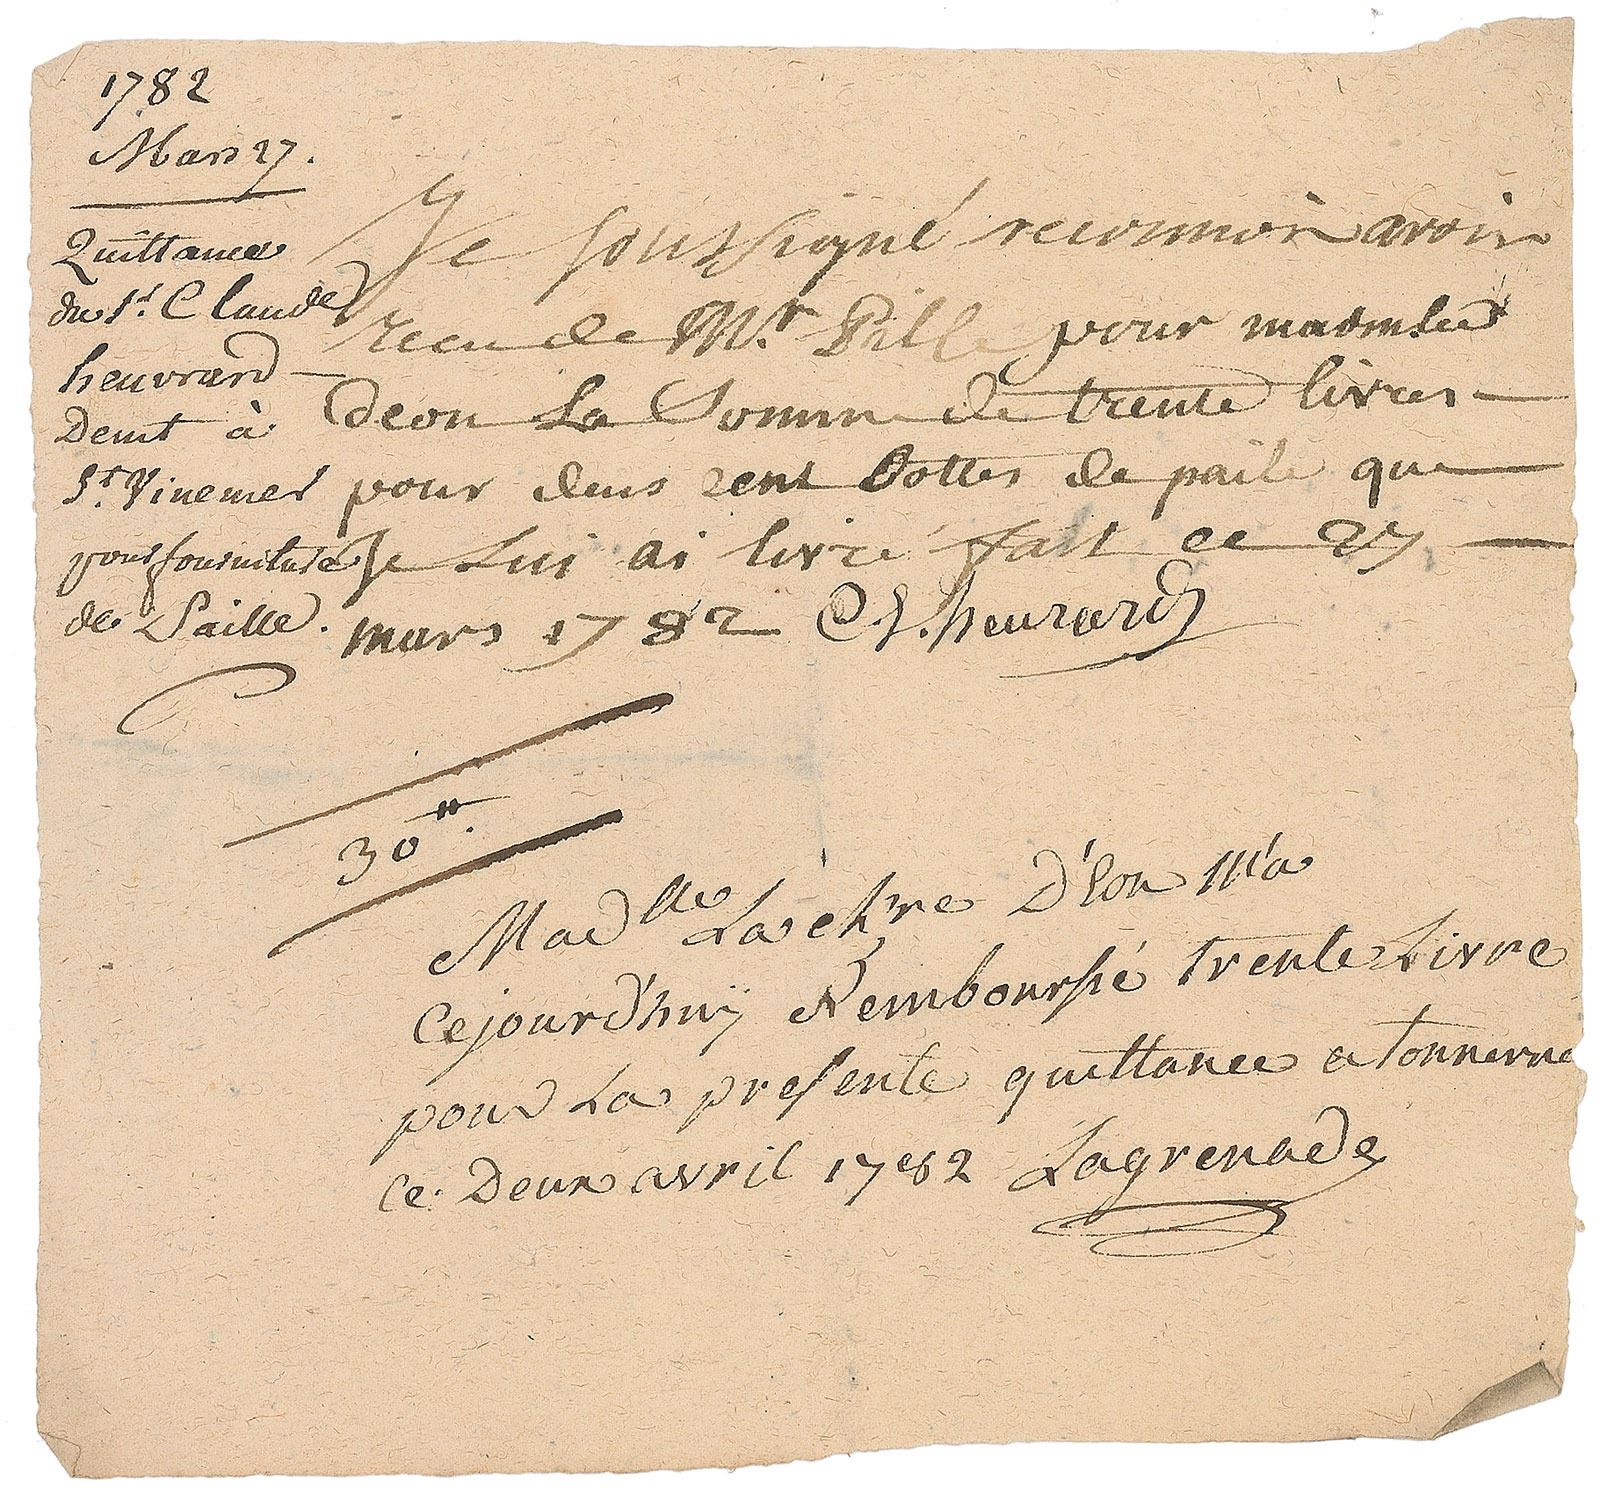 1782
Mars 27.
Quittance
du Sr. Claude
heuvrard
Demt à
St. Vinemer
pour fourniture
de Paille.
Je soussigné reconnoi avoir
recu de Mr. Pille pour
deon La Somme de trente livres
pour deus cent bottes de paile que
Je Lui ai livré fait ce 27
mars 1782 Cl. heurard
30tt.
Madlle La chre D'Eon m'a
Cejourd'huÿ Remboursé trente Livre
pour La presente quittance a tonnerre
ce Deux avril 1782 Lagrenade